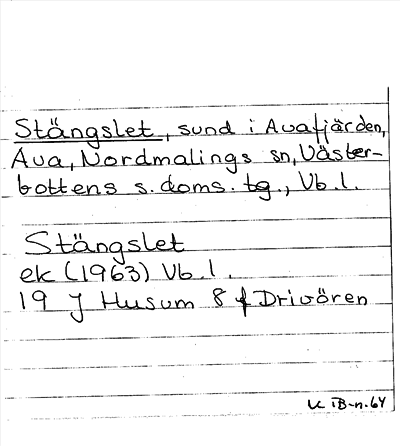 Stängslet, sund i Avafjärden,
Ava, Nordmalings sn, Väster-
bottens s. doms. tg., Vb. l.
Stängslet
ek (1963) Vb. l.
19 J Husum 8 f Drivören